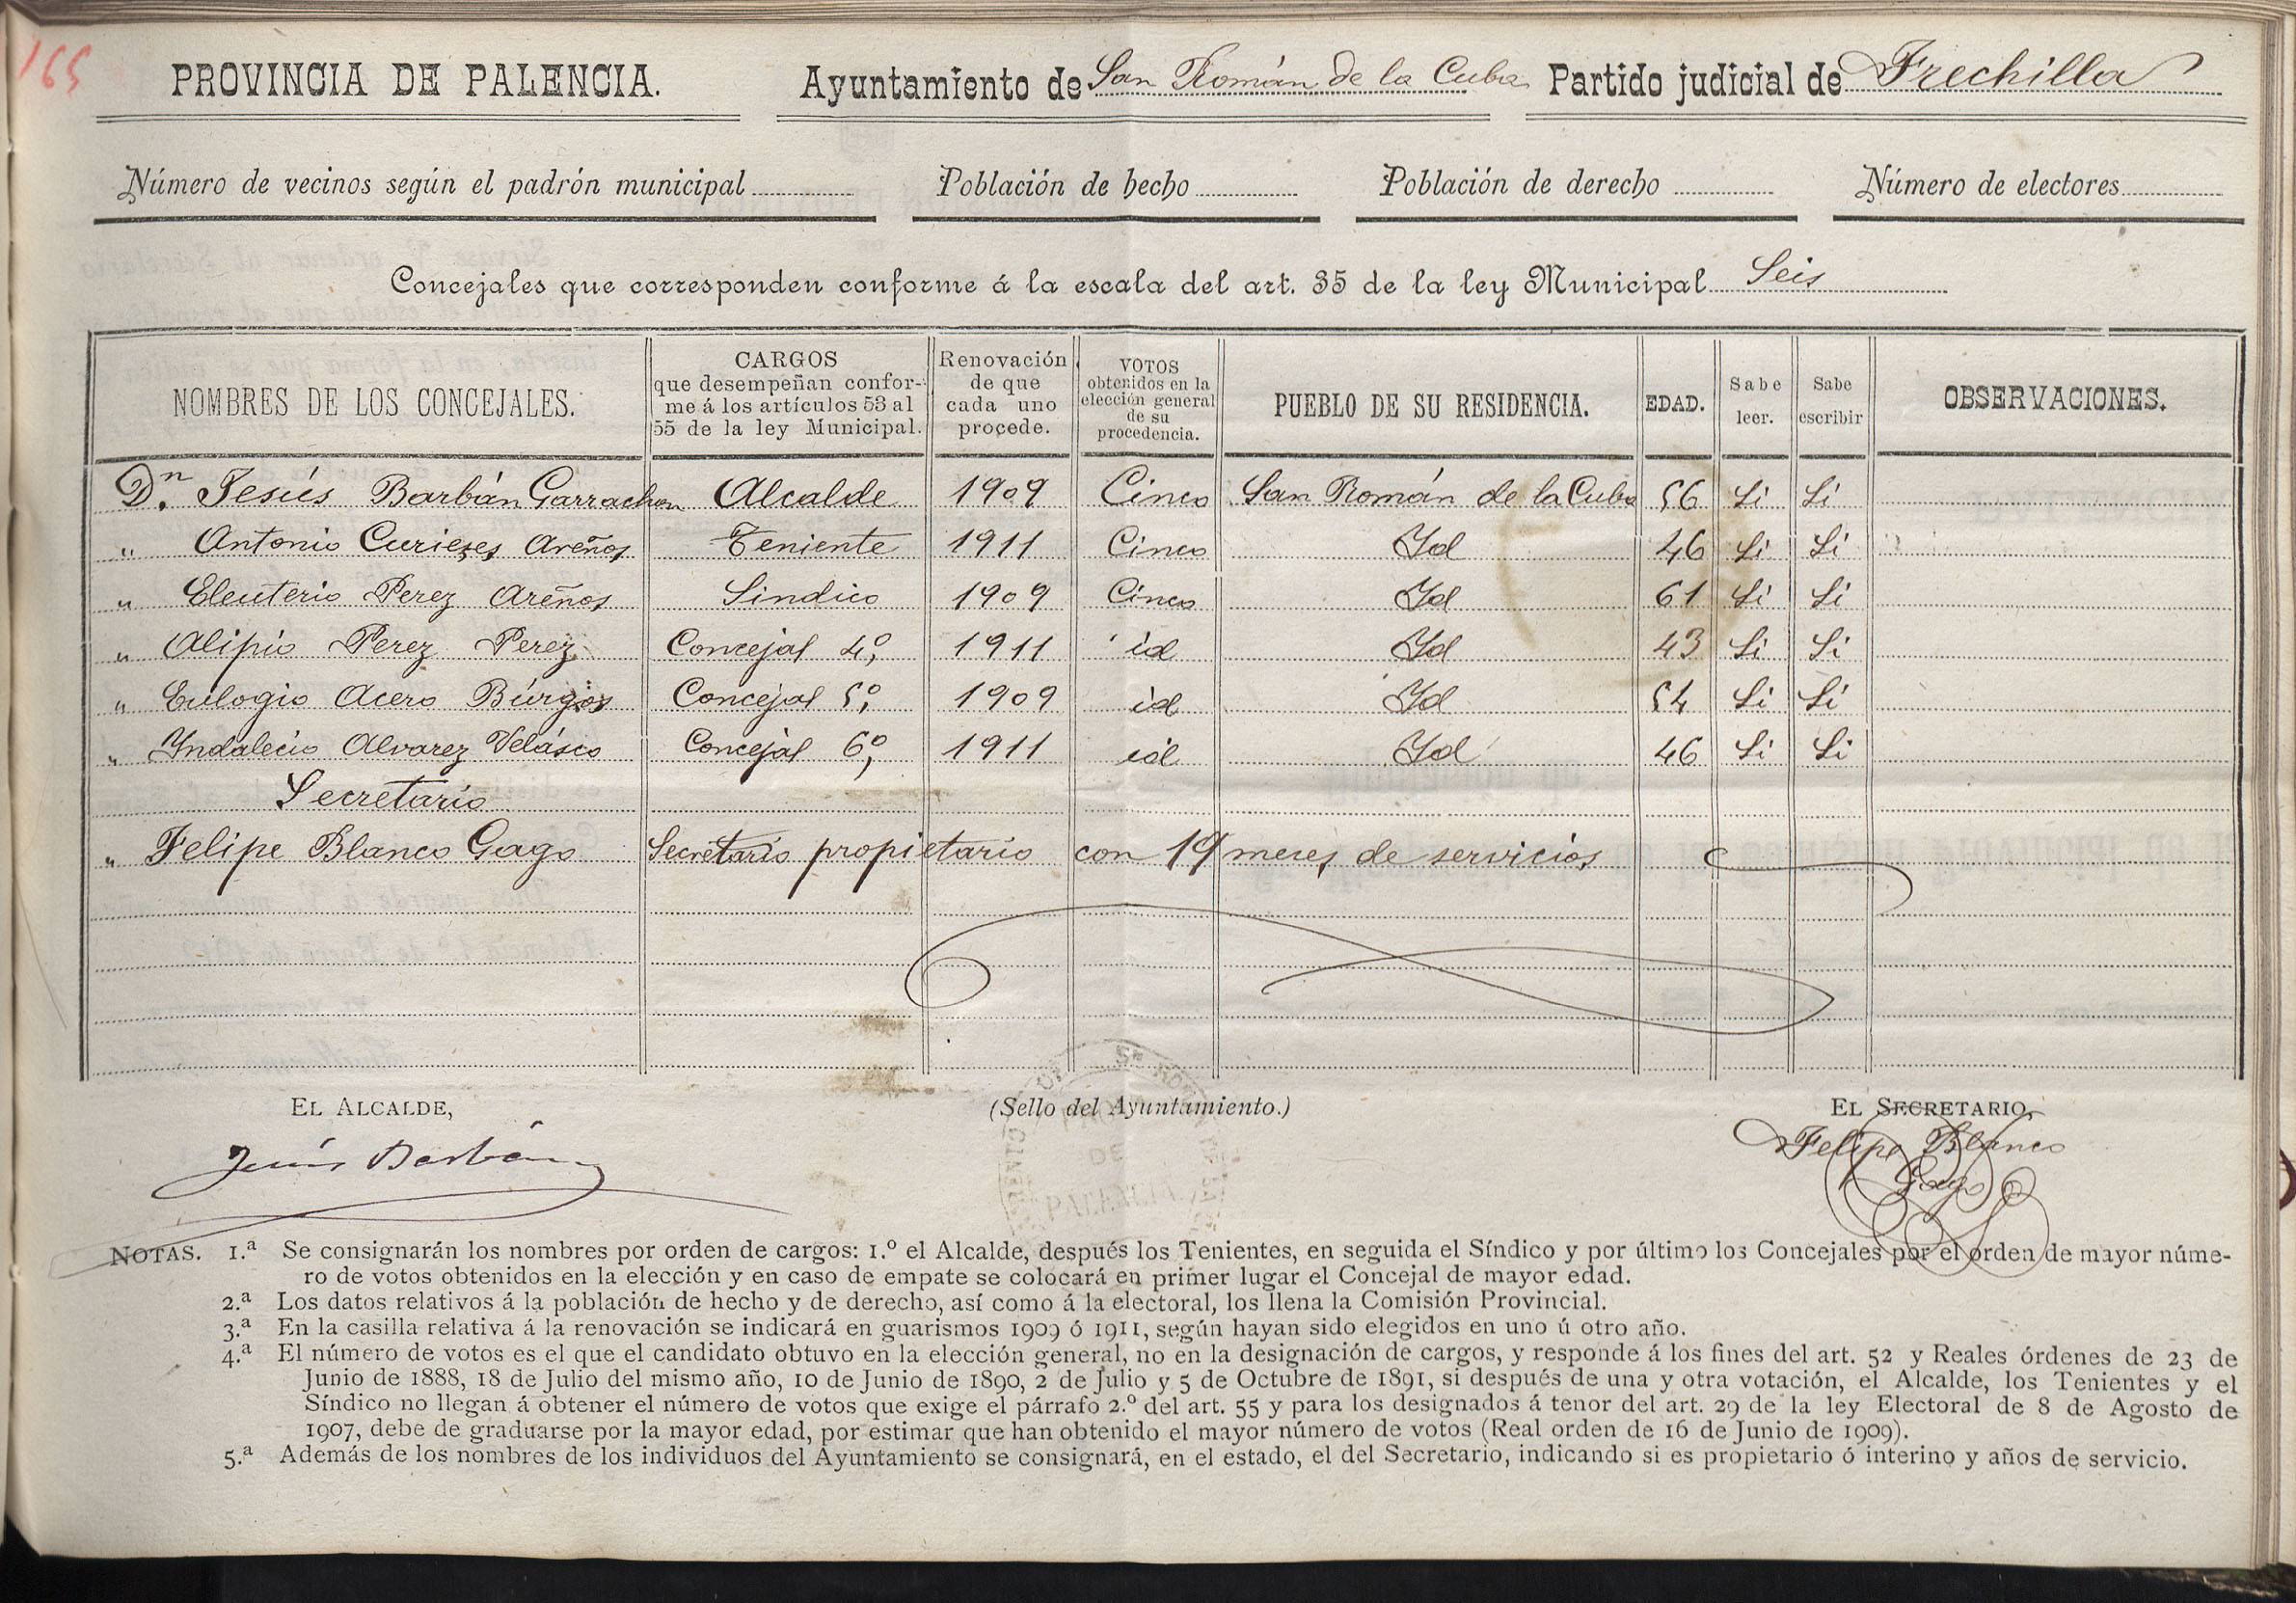 165
PROVINCIA DE PALENCIA. Ayuntamiento de San Román de la Cuba Partido judicial de Frechilla
Número de vecinos según el padrón municipal Población de hecho Población de derecho Número de electores
Concejales que corresponden conforme á la escala del art. 35 de la ley Municipal Seis
NOMBRES DE LOS CONCEJALES.
CARGOS
que desempeñan confor-
me á los artículos 53 al
55 de la ley Municipal.
Renovación
de que
cada uno
procede.
VOTOS
obtenidos en la
elección general
de su
procedencia.
PUEBLO DE SU RESIDENCIA.
EDAD.
Sabe
leer.
Sabe
escribir
OBSERVACIONES.
Dn. Jesús Barbán Garrachon Alcalde 1909 Cinco San Román de la Cuba 56 Si Si
" Antonio Curieses Areños Teniente 1911 Cinco Id 46 Si Si
" Eleuterio Perez Areños Sindico 1909 Cinco Id 61 Si Si
" Alipio Perez Perez Concejal 4º, 1911 id Id 43 Si Si
" Eulogio Acero Búrgos Concejal 5º, 1909 id Id 54 Si Si
" Yndalecio Alvarez Velásco Concejal 6º, 1911 id Id 46 Si Si
Secretario
" Felipe Blanco Gago Secretario propietario con 19 meses de servicios
EL ALCALDE, (Sello del Ayuntamiento.) EL SECRETARIO,
Jesús Barbán Felipe Blanco
Gago
DE
PALENCIA
NOTAS. 1.ª Se consignarán los nombres por orden de cargos: 1.º el Alcalde, después los Tenientes, en seguida el Síndico y por último los Concejales por el orden de mayor núme-
ro de votos obtenidos en la elección y en caso de empate se colocará en primer lugar el Concejal de mayor edad.
2.ª Los datos relativos á la población de hecho y de derecho, así como á la electoral, los llena la Comisión Provincial.
3.ª En la casilla relativa á la renovación se indicará en guarismos 1909 ó 1911, según hayan sido elegidos en uno ú otro año.
4.ª El número de votos es el que el candidato obtuvo en la elección general, no en la designación de cargos, y responde á los fines del art. 52 y Reales órdenes de 23 de
Junio de 1888, 18 de Julio del mismo año, 10 de Junio de 1890, 2 de Julio y 5 de Octubre de 1891, si después de una y otra votación, el Alcalde, los Tenientes y el
Síndico no llegan á obtener el número de votos que exige el párrafo 2.º del art. 55 y para los designados á tenor del art. 29 de la ley Electoral de 8 de Agosto de
1907, debe de graduarse por la mayor edad, por estimar que han obtenido el mayor número de votos (Real orden de 16 de Junio de 1909).
5.ª Además de los nombres de los individuos del Ayuntamiento se consignará, en el estado, el del Secretario, indicando si es propietario ó interino y años de servicio.